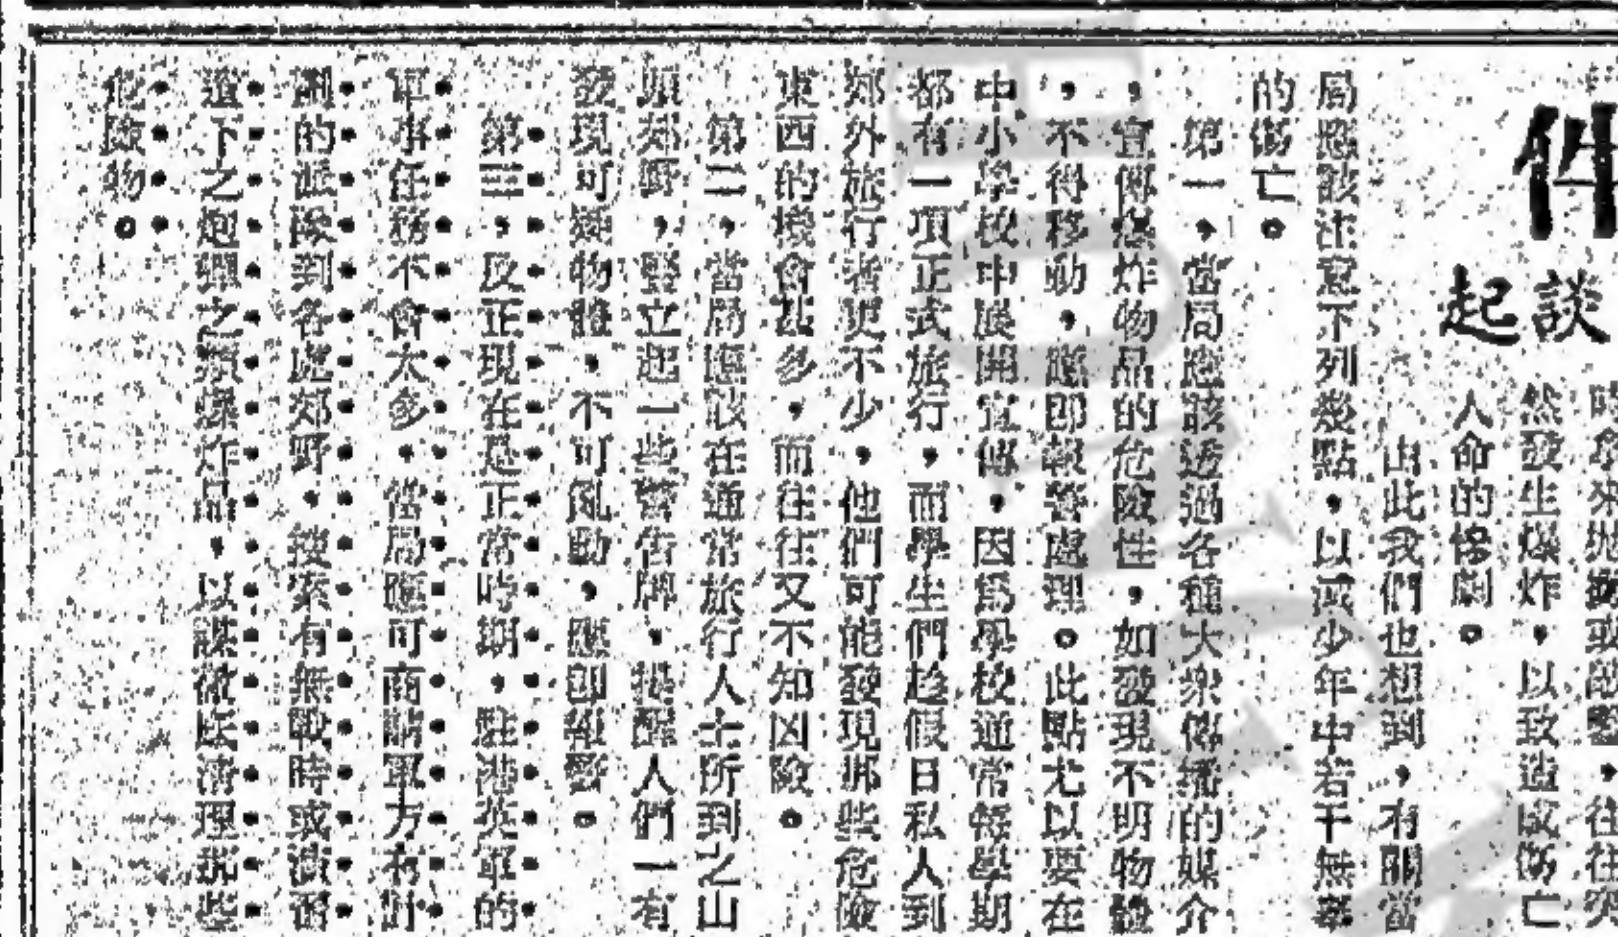 件
談起
然發生爆炸，以致造成傷亡
人命的慘劇。
由此我們也想到，有關當
局應該注意下列幾點，以減少年中若干無辜
的傷亡。
第一，當局應該透過各種大衆傳播的媒介
，宣傳爆炸物品的危險性，如發現不明物體
，不得移動，應即報警處理。此點尤以要在
中小學校中展開宣傳，因爲學校通常每學期
都有一項正式旅行，而學生們趁假日私人到
郊外旅行者更不少，他們可能發現那些危險
東西的機會甚多，而往往又不知凶險。
第二，當局應該在通常旅行人士所到之山
頭郊野，豎立起一些警告牌，提醒人們一有
發現可疑物體，不可亂動，應即報警。
第三，反正現在是正常時期，駐港英軍的
軍事任務不會太多，當局應可商請軍方有計
劃的派隊到各處郊野，搜索有無戰時或演習
遺下之炮彈之類爆炸品，以謀徹底清理此些
危險物。